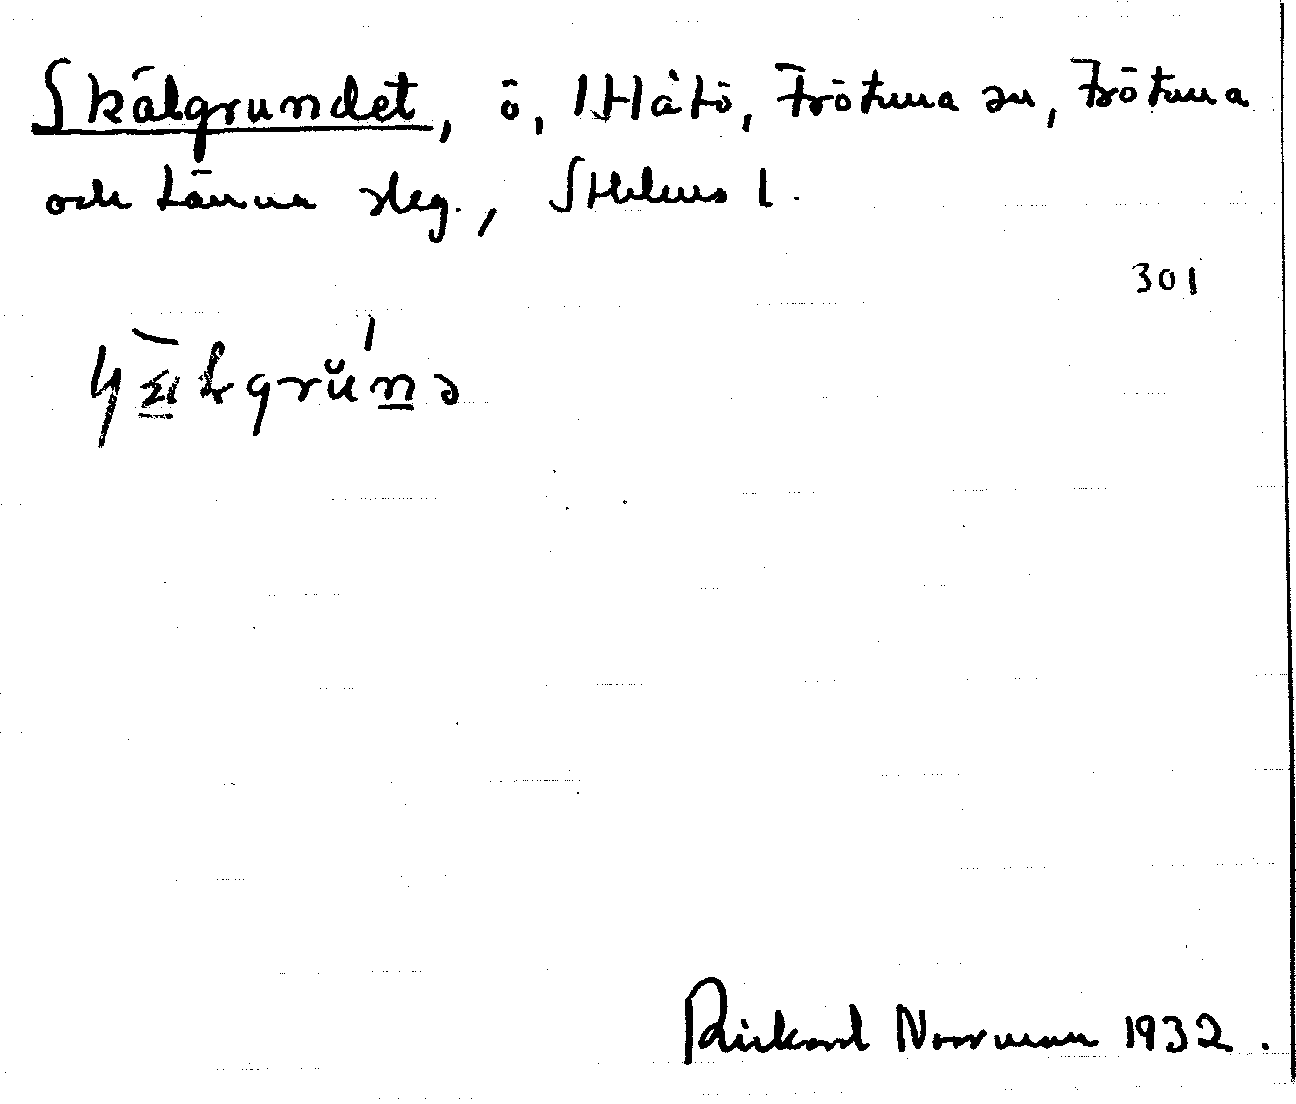 Skälgrundet, ö, Håtö, Frötuna sn, Frötuna
och Länna skg., Sthlms l.
301
Rickard Noorman 1932.